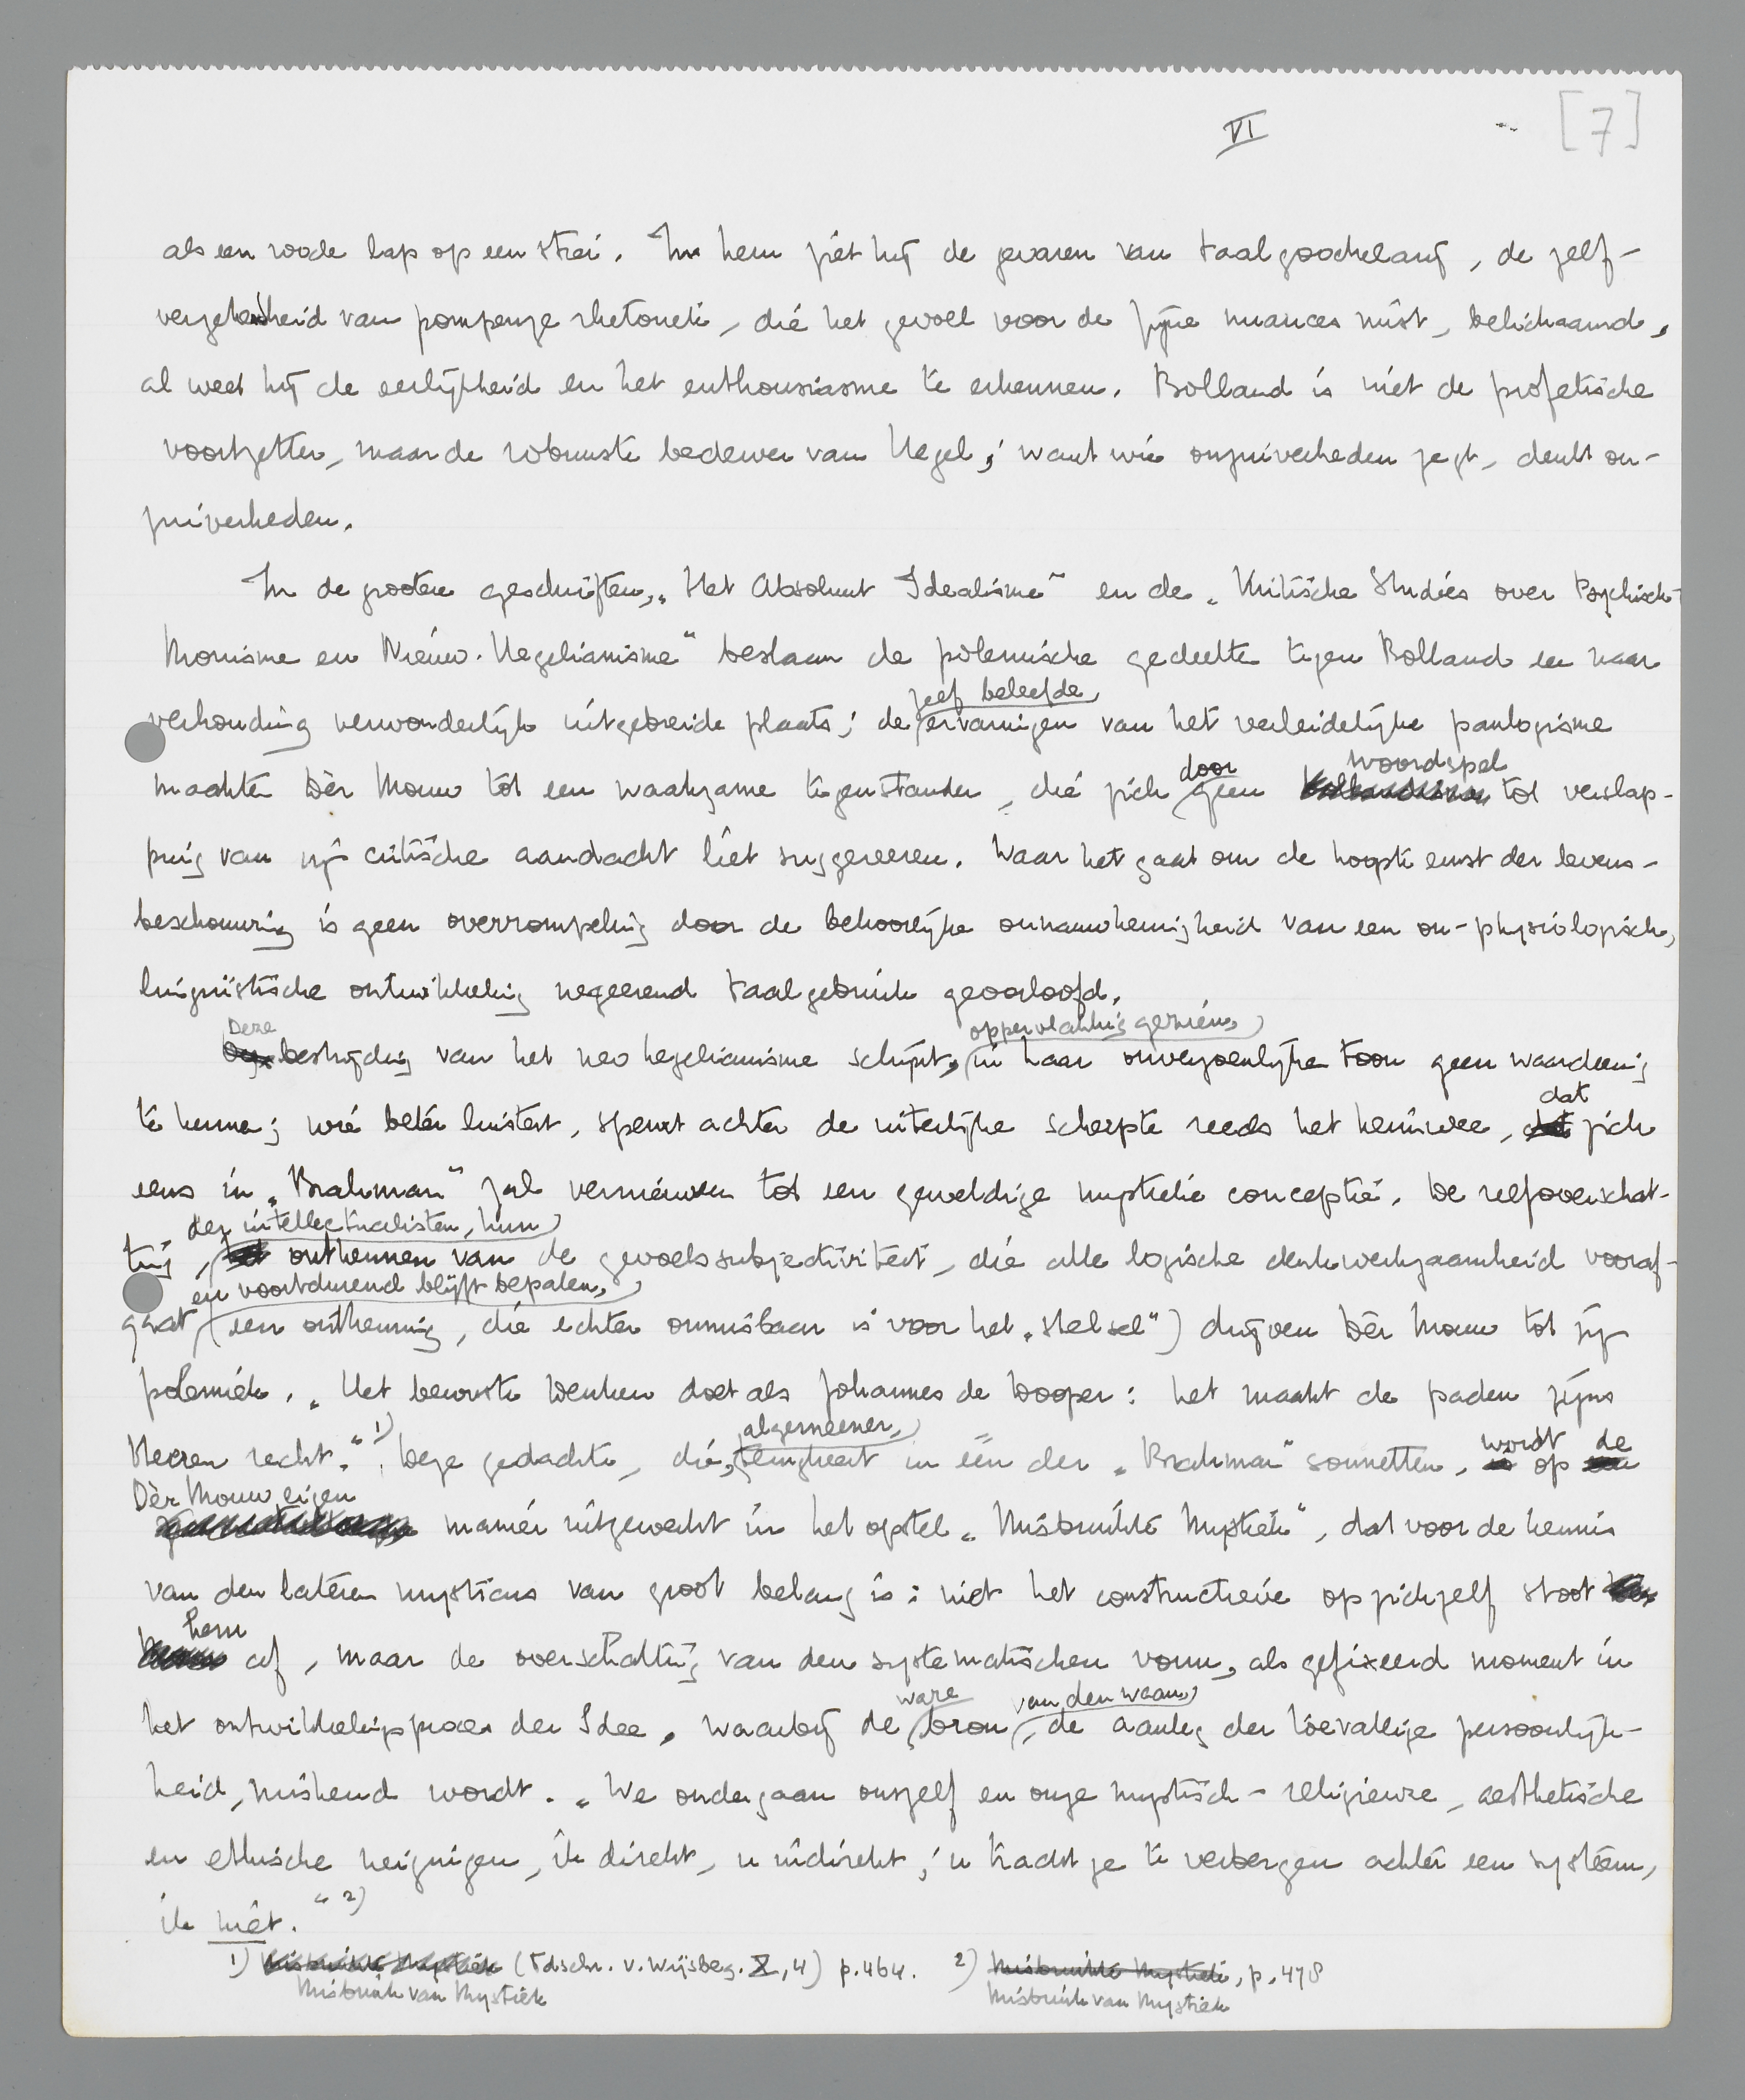 VI
[7]
als een roode lap op een stier. In hem ziet hij de gevaren van taalgoochelarij, de zelf-
vergetenheid van pompeuze rhetoriek, die het gevoel voor de fijne nuances mist, belichaamd,
al weet hij de eerlijkheid en het enthousiasme te erkennen. Bolland is niet de profetische
voortzetter, maar de robuuste bederver van Hegel; want wie onzuiverheden zegt, denkt on-
zuiverheden.
In de grootere geschriften, „Het Absoluut Idealisme" en de „Kritische Studies over Psychisch
Monisme en Nieuw-Hegelianisme" beslaan de polemische gedeelten tegen Bolland een naar
verhouding verwonderlijk uitgebreide plaats; de zelf beleefde ervaringen van het verleidelijke panlogisme
maakten Dèr Mouw tot een waakzame tegenstander, die zich door geen woordspel tot verslap-
ping van zijn critische aandacht liet suggereeren. Waar het gaat om de hoogste ernst der levens-
beschouwing is geen overrompeling door de bekoorlijke onnauwkeurigheid van een on-physiologisch,
linguistische ontwikkeling negeerend taalgebruik geoorloofd.
Deze bestrijding van het neo hegelianisme schijnt, oppervlakkig gezien, in haar onverzoenlijke toon geen waardeering
te kennen; wie beter luistert, speurt achter de uiterlijke scherpte reeds het heimwee, dat zich
eens in „Brahman" zal vernieuwen tot een geweldige mystieke conceptie. De zelfoverschat-
ting der intellectualisten, hun ontkennen van de gevoelssubjectiviteit, die alle logische denkwerkzaamheid vooraf-
gaat en voortdurend blijft bepalen, (een ontkenning, die echter onmisbaar is voor het „stelsel") drijven Dèr Mouw tot zijn
polemiek. „Het bewuste denken doet als Johannes de Dooper: het maakt de paden zijns
Heeren recht." 1) Deze gedachte, die, algemeener, terugkeert in één der „Brahman" sonnetten, wordt op de
Dèr Mouw eigen manier uitgewerkt in het opstel „Misbruikte Mystiek", dat voor de kennis
van den lateren mysticus van groot belang is: niet het constructieve op zichzelf stoot
hem af, maar de overschatting van den systematischen vorm, als gefixeerd moment in
het ontwikkelingsproces der Idee, waarbij de ware bron van den waan, de aanleg der toevallige persoonlijk-
heid, miskend wordt. „We ondergaan onszelf en onze mystisch-religieuze, aesthetische
en ethische neigingen, ik direkt, u indirekt; u tracht ze te verbergen achter een systeem,
ik niet." 2)
1) Misbruikte Mystiek (Tdschr. v. Wijsbeg. X, 4) p. 464. 2) Misbruikte Mystiek, p. 478
Misbruik van Mystiek Misbruik van Mystiek